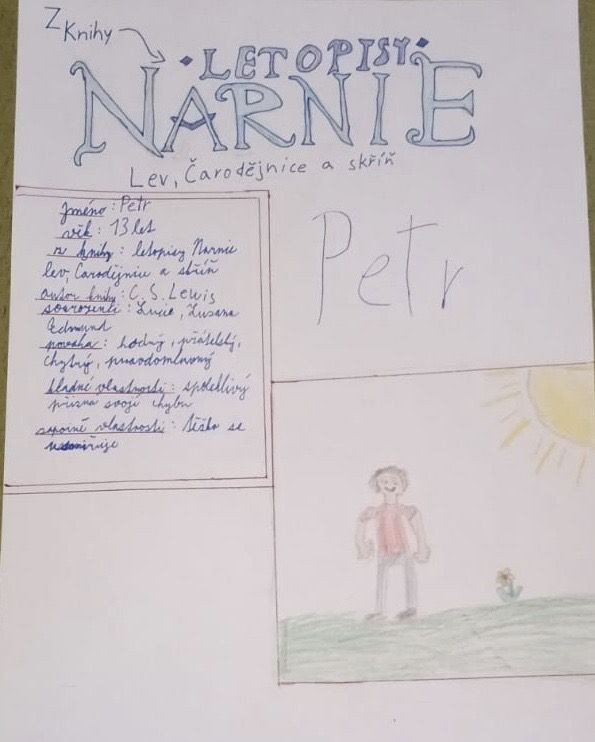 Z Knihy
LETOPISY
NARNIE
Lev, Čarodějnice a skříň
Jméno: Petr
věk: 13 let
z knihy: letopisy Narnie
lev, Čarodějnice a skříň
autor knihy: C. S. Lewis
sourozenci: Lucie, Zuzana
Edmund
povaha: hodný, přátelský,
chytrý, pravdomluvný
kladné vlastnosti: spolehlivý
přizná svojí chybu
záporné vlastnosti: těžko se
Petr